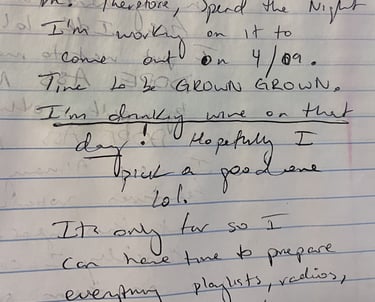 on. Therefore, Spend the Night
I'm working on it to
come out on 4/09.
Time to be GROWN GROWN.
I'm drinking wine on that
day! Hopefully I
pick a good one
lol.
It's only far so I
can have time to prepare
everything playlists, radios,